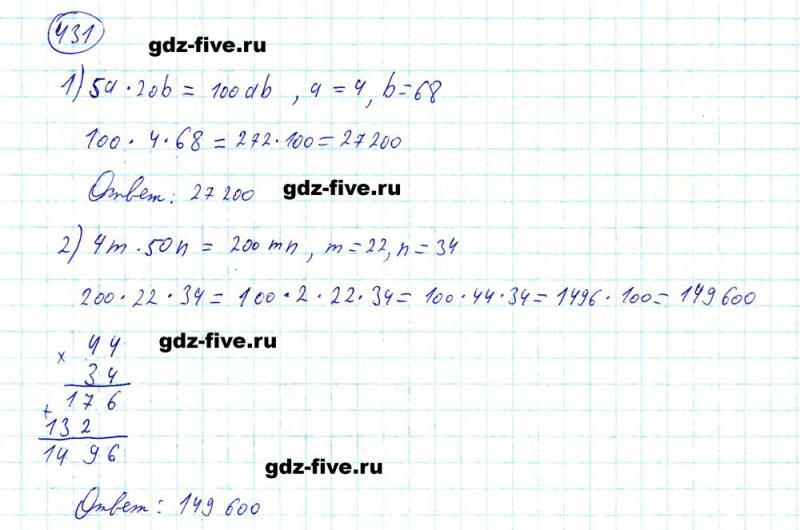 431
gdz-five.ru
1) 5a · 20b = 100ab , a = 4, b = 68
100 · 4 · 68 = 272 · 100 = 27 200
Ответ: 27 200
gdz-five.ru
2) 4m · 50n = 200 mn , m = 22, n = 34
200 · 22 · 34 = 100 · 2 · 22 · 34 = 100 · 44 · 34 = 1496 · 100 = 149 600
gdz-five.ru
x 44
34
+ 176
132
1496
gdz-five.ru
Ответ: 149 600